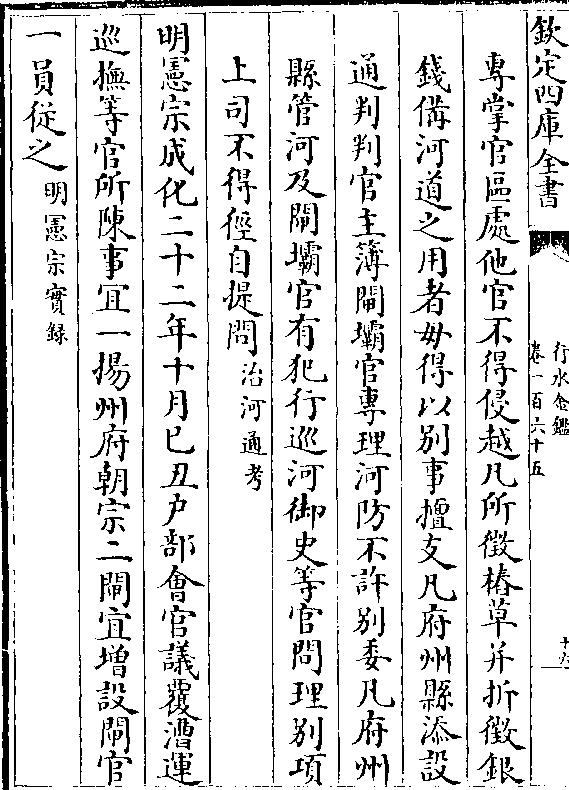 欽定四庫全書
行水金鑑
卷一百六十五
專掌官區處他官不得侵越凡所徵樁草并折徵銀
錢備河道之用者毋得以别事擅支凡府州縣添設
通判判官主簿閘壩官專理河防不許别委凡府州
縣管河及閘壩官有犯行巡河御史等官問理别項
上司不得徑自提問治河通考
明憲宗成化二十二年十月己丑户部會官議覆漕運
巡撫等官所陳事宜一揚州府朝宗二閘宜增設閘官
一員從之明憲宗實録